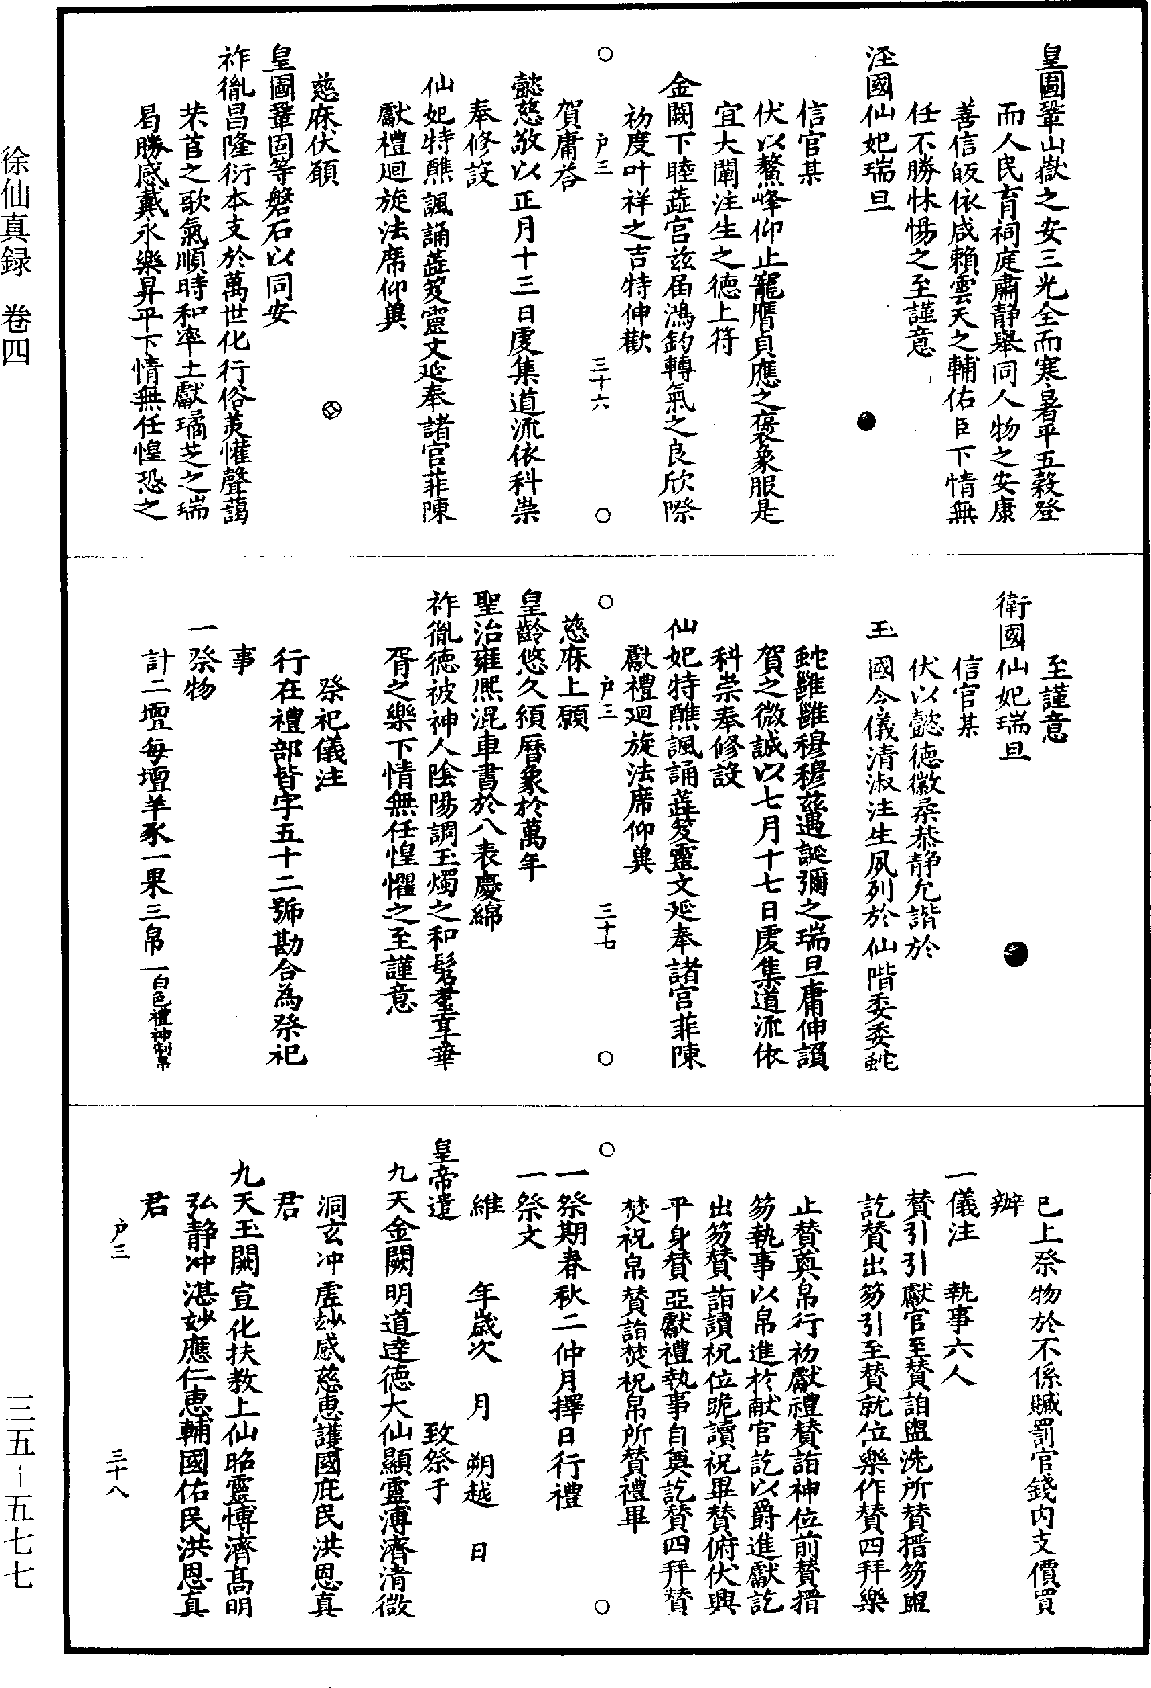 皇圖鞏山嶽之安三光全而寒暑平五穀登
而人民育祠庭肅静舉同人物之安康
善信皈依咸賴雲天之輔佑臣下情無
任不勝怵惕之至謹意
涇國仙妃瑞旦
信官某
伏以鰲峰仰止寵膺貞應之褒象服是
宜大闡注生之德上符
金闕下睦蘂宫兹届鴻鈞轉氣之良欣際
初度叶祥之吉特伸歡
户三
三十六
賀庸荅
懿慈敬以正月十三日虔集道流依科崇
奉修設
仙妃特醮諷誦蘂笈靈文延奉諸官菲陳
獻禮廻旋法席仰冀
慈庥伏願
皇圖鞏固等磐石以同安
祚胤昌隆衍本支於萬世化行俗羙懽聲藹
芣苢之歌氣順時和率土獻璚芝之瑞
曷勝感戴永樂昇平下情無任惶恐之
至謹意
衛國仙妃瑞旦
信官某
伏以懿德徽柔恭静允諧於
玉國令儀清淑注生夙列於仙階委委蛇
蛇雝雝穆穆兹遇誕彌之瑞旦庸伸頌
賀之微誠以七月十七日虔集道流依
科崇奉修設
仙妃特醮諷誦蘂笈靈文延奉諸宫菲陳
獻禮廻旋法席仰冀
户三
三十七
慈庥上願
皇齡悠久須曆象於萬年
聖治雍熈混車書於八表慶綿
祚胤德被神人陰陽調玉燭之和髫耋享華
胥之樂下情無任惶懼之至謹意
祭祀儀注
行在禮部皆字五十二號勘合為祭祀
事
一祭物
計二壇每壇羊豕一果三帛一白色禮神制帛
已上祭物於不係贓罰官錢内支價買
辦
一儀注　執事六人
賛引引獻官至賛詣盥洗所賛搢笏盥
訖賛出笏引至賛就位樂作賛四拜樂
止賛奠帛行初獻禮賛詣神位前賛搢
笏執事以帛進於献官訖以爵進獻訖
出笏賛詣讀祝位跪讀祝畢賛俯伏興
平身賛亞獻禮執事自奠訖賛四拜賛
焚祝帛賛詣焚祝帛所賛禮畢
一祭期春秋二仲月擇日行禮
一祭文
維　年歲次　月　朔越　日
皇帝遣　致祭于
九天金闕明道達德大仙顯靈溥濟清微
洞玄冲虛玅感慈惠護國庇民洪恩真
君
九天玉闕宣化扶教上仙昭靈博濟髙明
弘静冲湛妙應仁惠輔國佑民洪恩真
君
户三
三十八
徐仙真録　卷四
三五－五七七